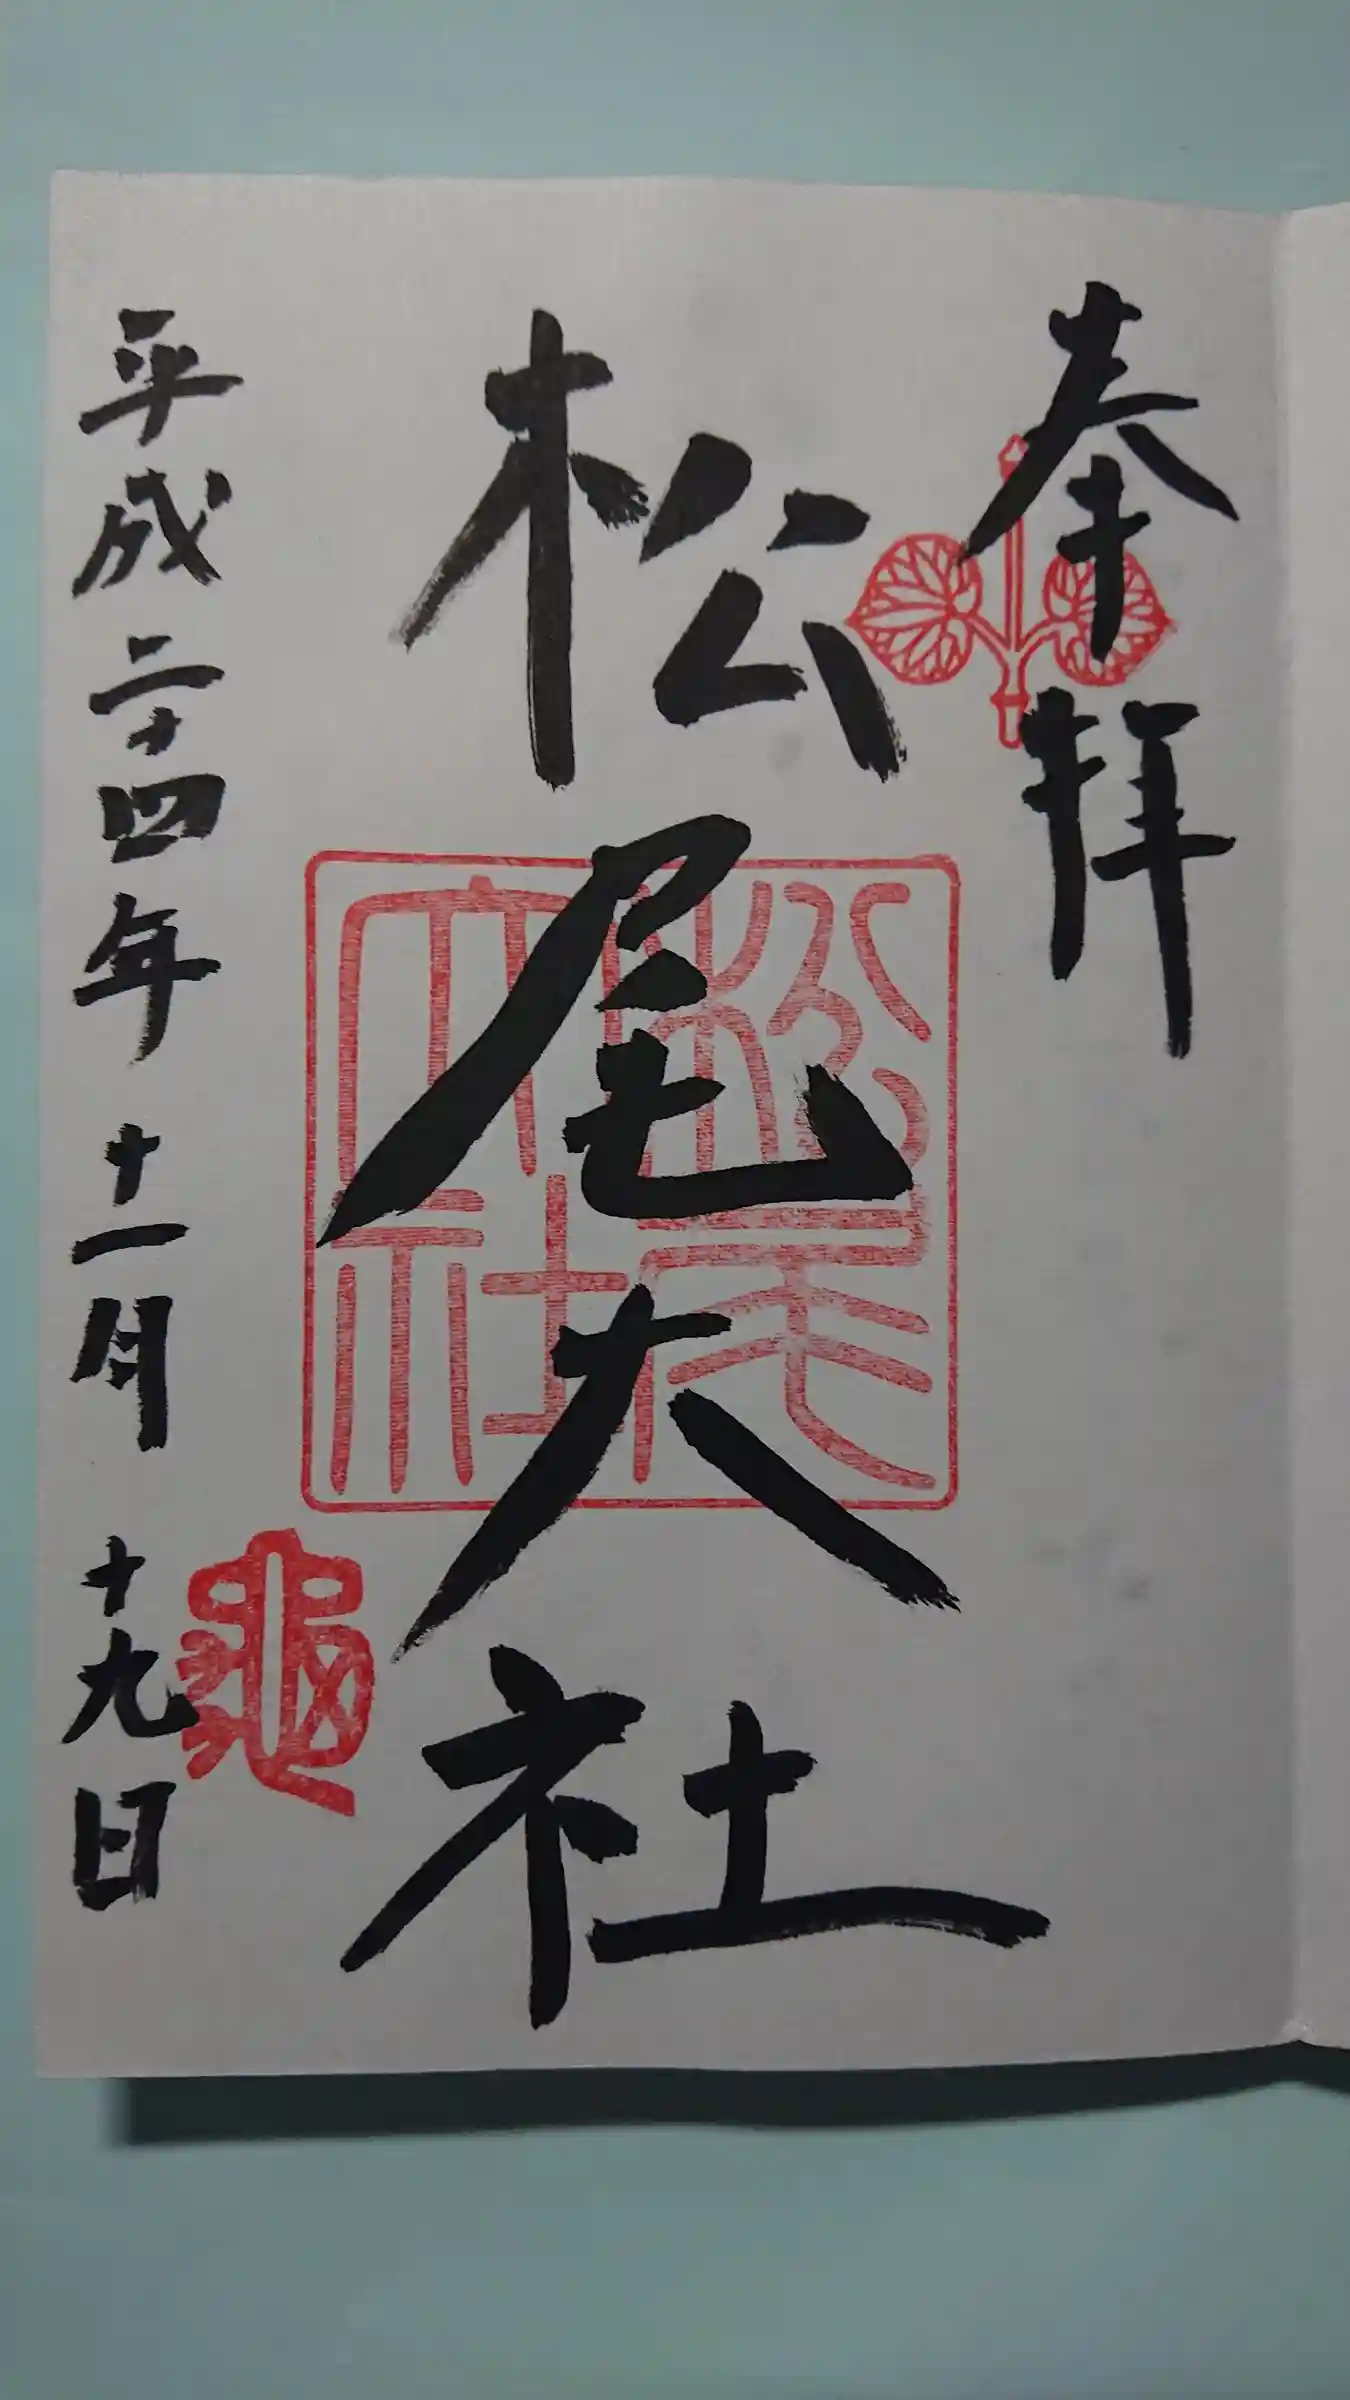 奉拝
松尾大社
松尾大社
平成二十四年十一月十九日
龜